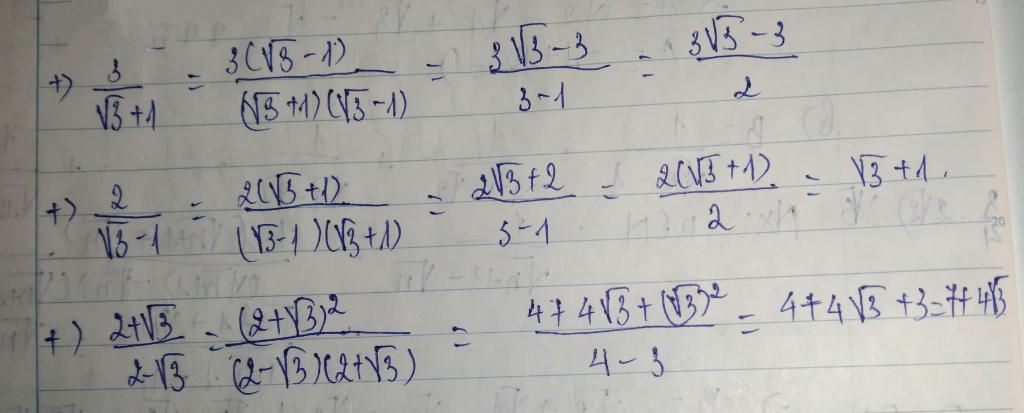 +) 3/(√3+1) = 3(√3-1)/((√3+1)(√3-1)) = (3√3-3)/(3-1) = (3√3-3)/2
+) 2/(√3-1) = 2(√3+1)/((√3-1)(√3+1)) = (2√3+2)/(3-1) = 2(√3+1)/2 = √3+1.
+) (2+√3)/(2-√3) = (2+√3)²/((2-√3)(2+√3)) = (4+4√3+(√3)²)/(4-3) = 4+4√3+3=7+4√3